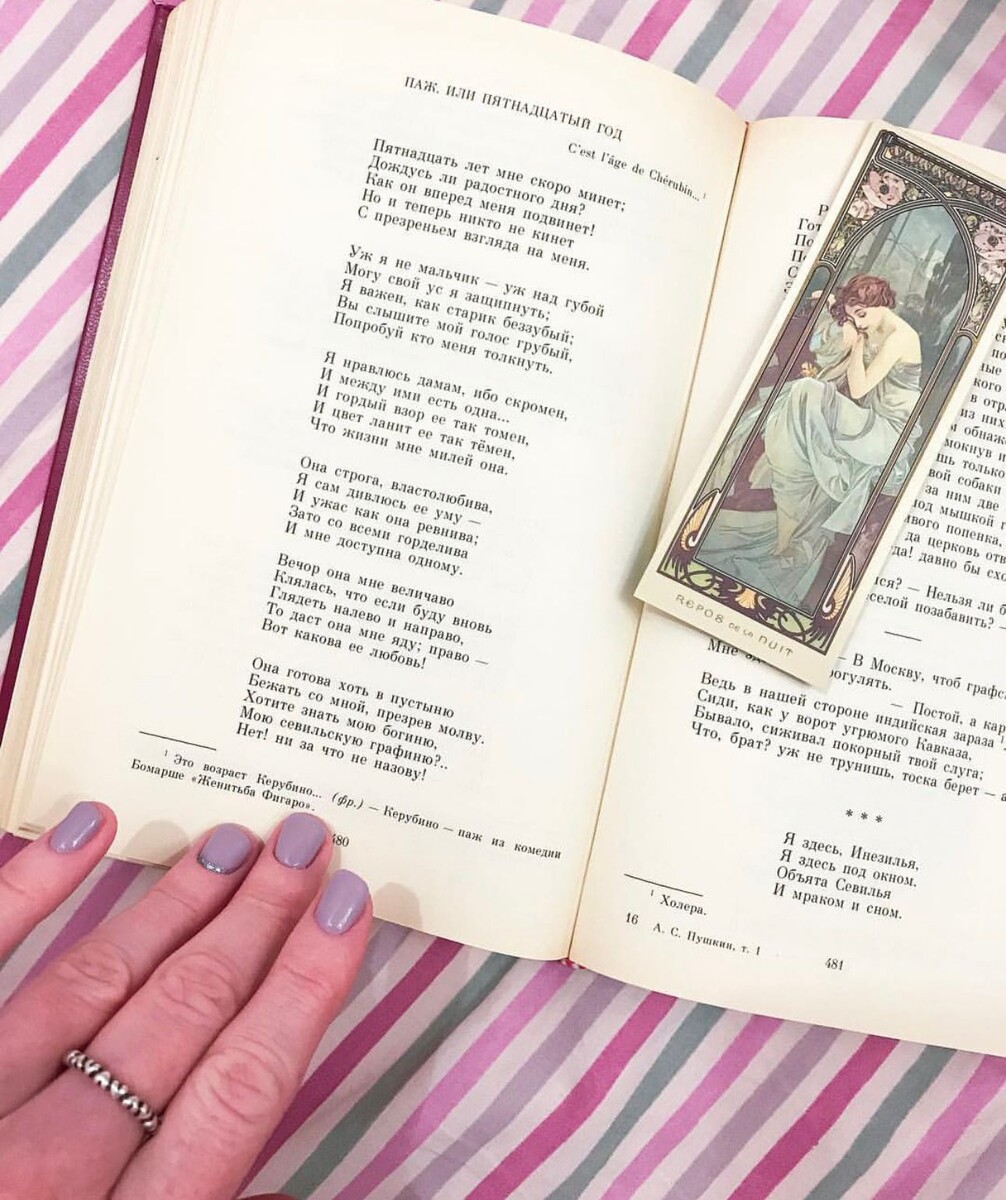 ПАЖ, ИЛИ ПЯТНАДЦАТЫЙ ГОД
C'est l'âge de Chérubin... ¹
Пятнадцать лет мне скоро минет;
Дождусь ли радостного дня?
Как он вперед меня подвинет!
Но и теперь никто не кинет
С презреньем взгляда на меня.
Уж я не мальчик — уж над губой
Могу свой ус я защипнуть;
Я важен, как старик беззубый;
Вы слышите мой голос грубый,
Попробуй кто меня толкнуть.
Я нравлюсь дамам, ибо скромен,
И между ими есть одна...
И гордый взор ее так томен,
И цвет ланит ее так тёмен,
Что жизни мне милей она.
Она строга, властолюбива,
Я сам дивлюсь ее уму —
И ужас как она ревнива;
Зато со всеми горделива
И мне доступна одному.
Вечор она мне величаво
Клялась, что если буду вновь
Глядеть налево и направо,
То даст она мне яду; право —
Вот какова ее любовь!
Она готова хоть в пустыню
Бежать со мной, презрев молву.
Хотите знать мою богиню,
Мою севильскую графиню?..
Нет! ни за что не назову!
¹ Это возраст Керубино... (фр.) — Керубино — паж из комедии
Бомарше «Женитьба Фигаро».
480
REPOS DE LA NUIT
в отра
из них
обнаж
мокнув и
только
вой собаки
за ним две
под мышкой
попенка.
да церковь отв
давно бы
— Нельзя ли б
позабавить? —
Мне
— В Москву, чтоб графс
— Постой, а кар
Ведь в нашей стороне индийская зараза ¹
Сиди, как у ворот угрюмого Кавказа,
Бывало, сиживал покорный твой слуга;
Что, брат? уж не трунишь, тоска берет — а
* * *
Я здесь, Инезилья,
Я здесь под окном.
Объята Севилья
И мраком и сном.
¹ Холера.
16 А. С. Пушкин, т. 1
481